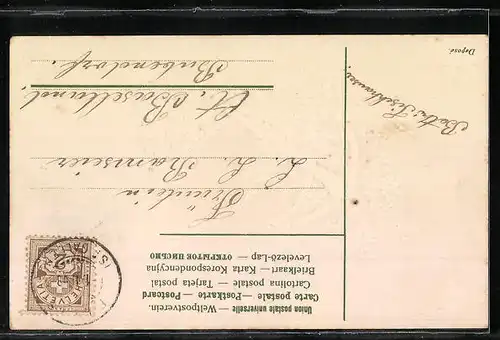 Union postale universelle — Weltpostverein.
Carte postale — Postkarte — Postcard
Cartolina postale — Tarjeta postal
Briefkaart — Karta Korespondencyjna
Levelező-Lap — ОТКРЫТОЕ ПИСЬМО
Fräulein
L. L. Ramseier
Ct. Baselland
Bubendorf.
HELVETIA
Déposé.